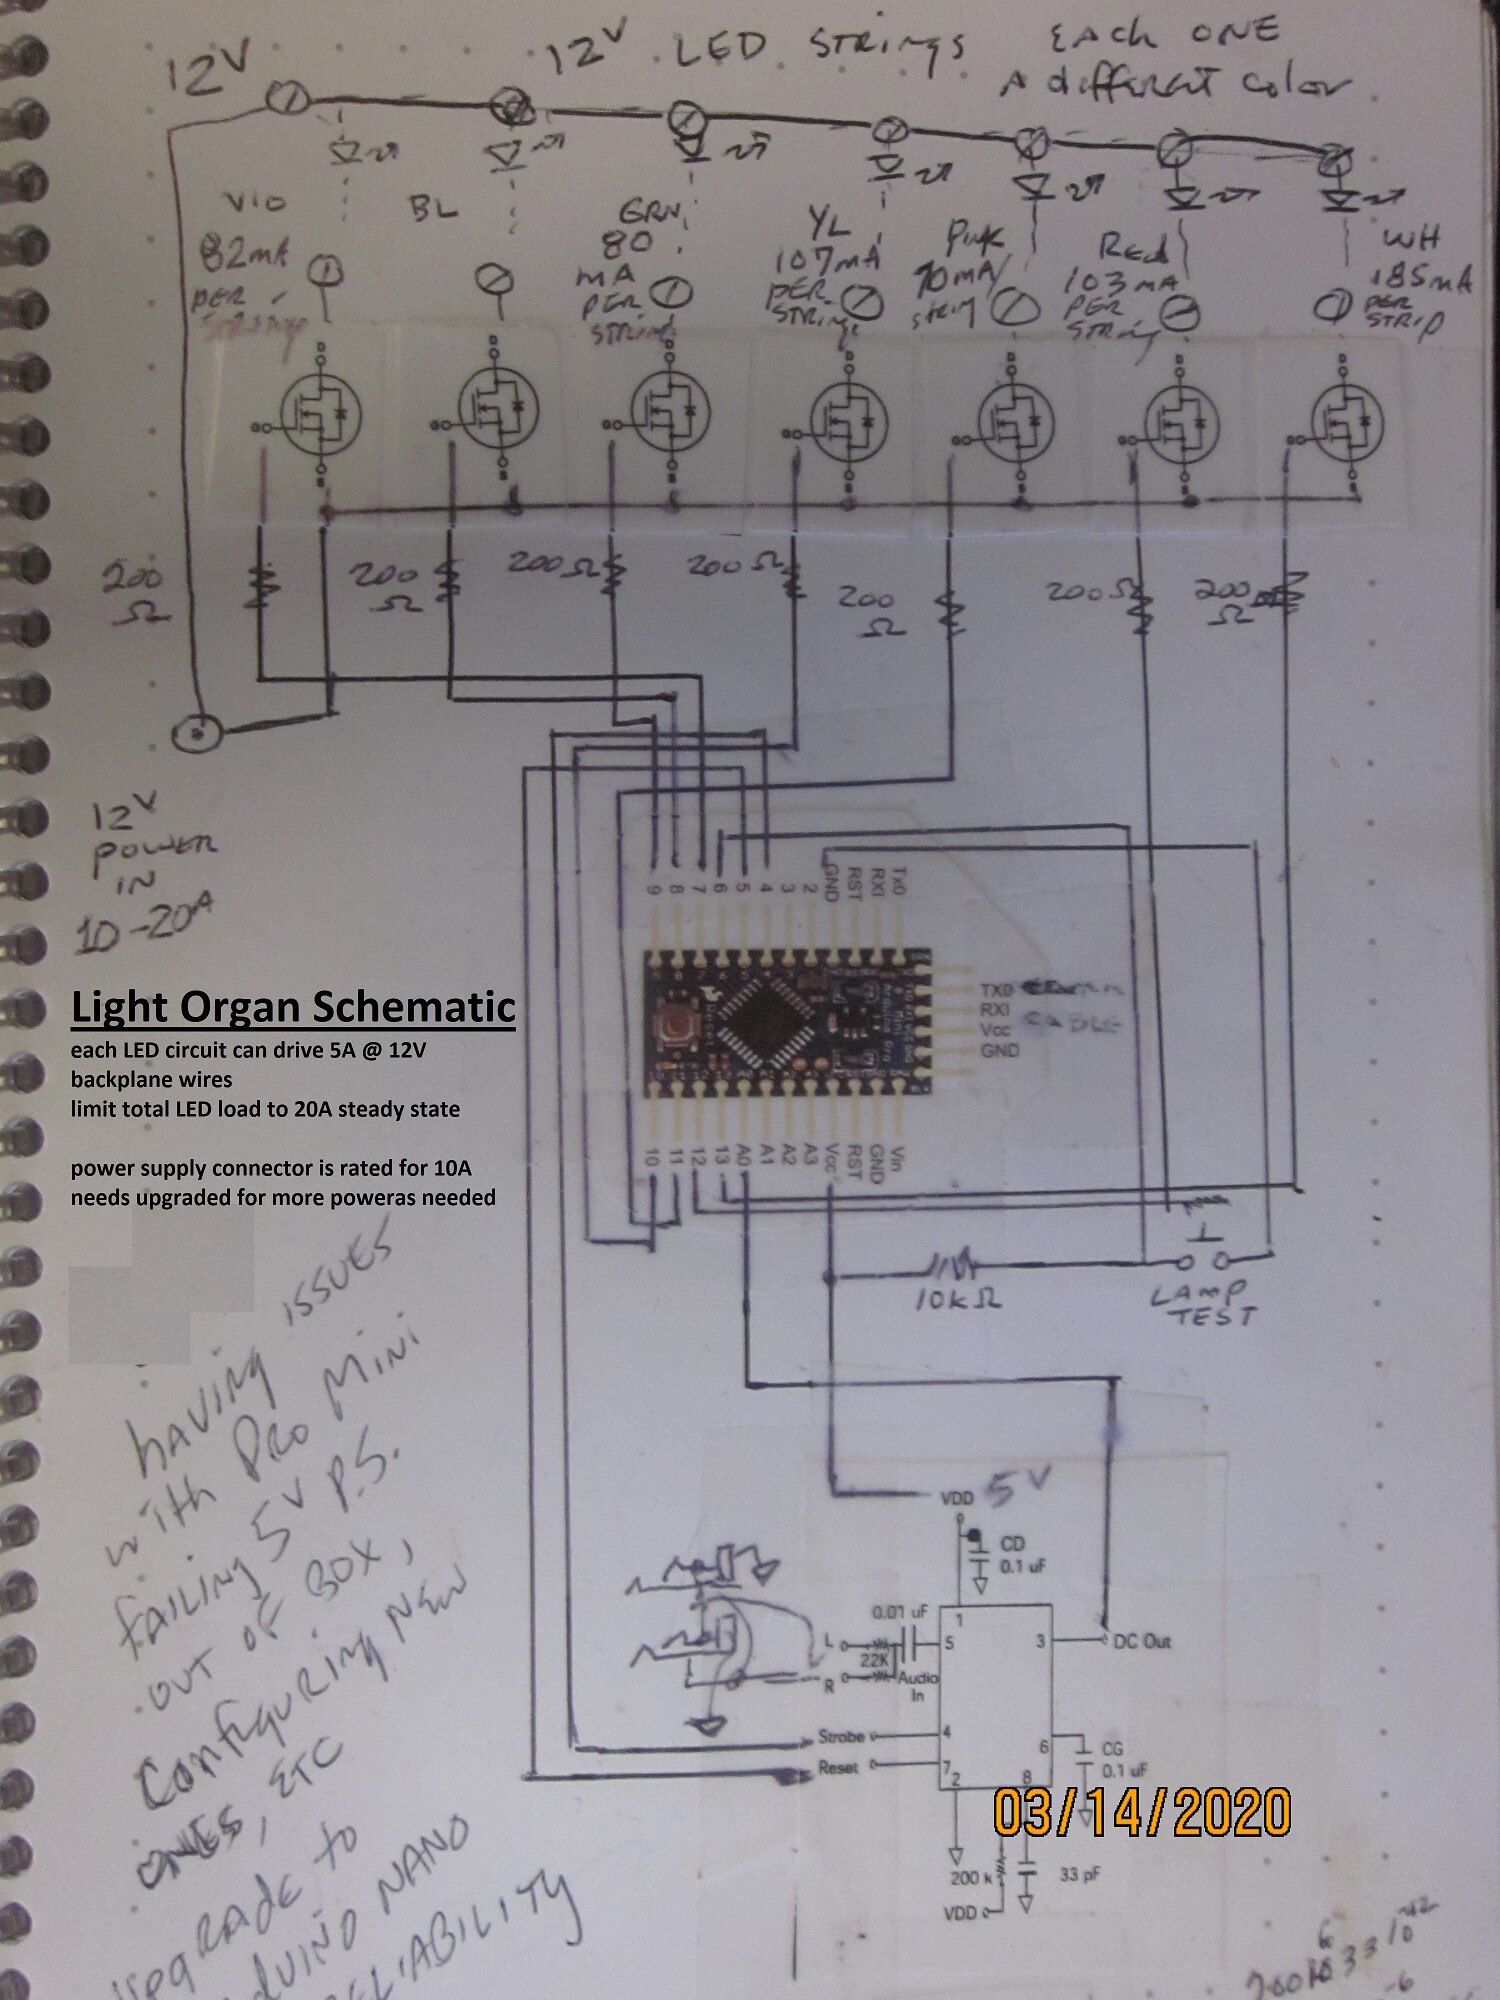 12V
12V LED STRINGS EACH ONE
A different color
VIO
82mA
PER
STRING
BL
GRN
80
mA
PER
STRING
YL
107mA
PER
STRING
Pink
70mA/
string
Red
103mA
PER
STRING
WH
185mA
PER
STRIP
D
G
S
D
G
S
D
G
S
D
G
S
D
G
S
D
G
S
D
G
S
200
Ω
200
Ω
200Ω
200Ω
200
Ω
200Ω
200
Ω
12V
POWER
IN
10-20A
9 8 7 6 5 4 3 2 GND RST RXI Tx0
Light Organ Schematic
each LED circuit can drive 5A @ 12V
backplane wires
limit total LED load to 20A steady state
power supply connector is rated for 10A
needs upgraded for more poweras needed
TX0
RXI CABLE
Vcc
GND
10 11 12 13 A0 A1 A2 A3 Vcc RST GND Vin
10KΩ
LAMP
TEST
having issues
with Pro Mini
failing 5V P.S.
out of BOX,
Configuring New
ONES, ETC
upgrade to
Arduino NANO
RELIABILITY
VDD 5V
CD
0.1 uF
0.01 uF
1
L
22K
5
3
DC Out
R
Audio
In
Strobe
4
Reset
7
6
CG
0.1 uF
2
8
03/14/2020
200 k
33 pF
VDD